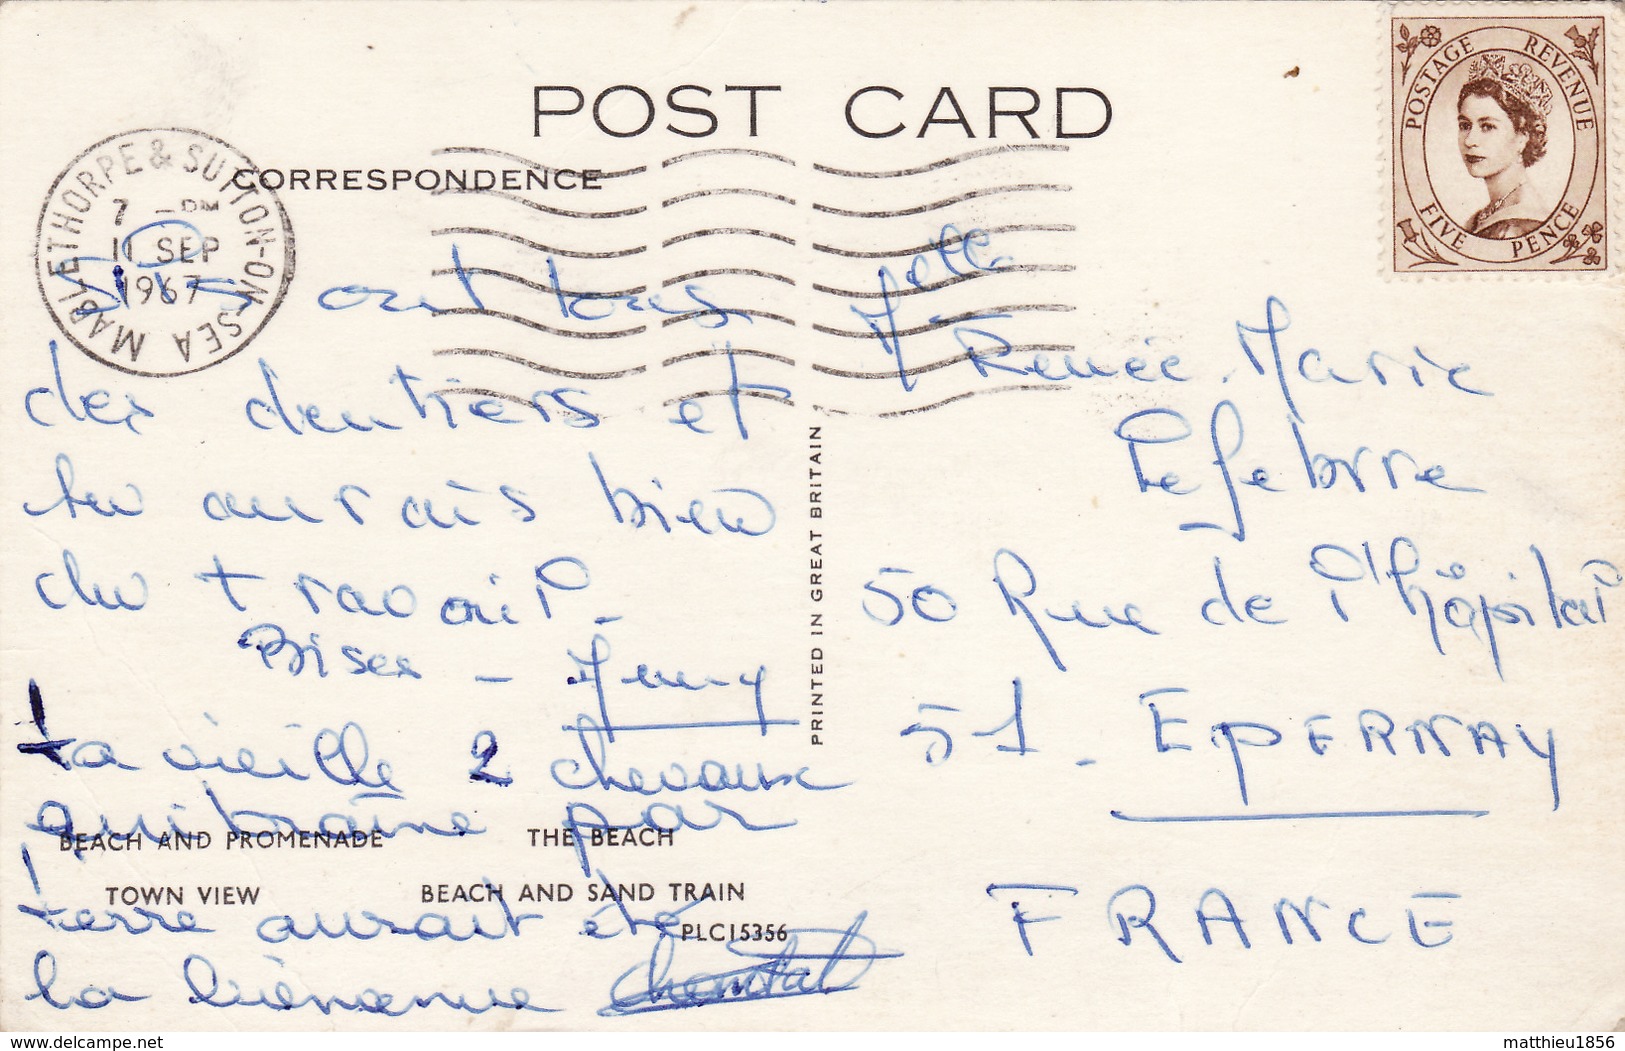 POST CARD
CORRESPONDENCE
MABLETHORPE & SUTTON-ON-SEA
7 - PM
11 SEP
1967
POSTAGE REVENUE
FIVE PENCE
ont tous
des dentiers et
tu aurais bien
du travail.
Bises -
ta vieille 2 chevaux
qui traîne par
terre aurait été
la bienvenue
PRINTED IN GREAT BRITAIN
Melle
Renée. Marie
Lefebvre
50 Rue de l'hôpital
51. EPERNAY
FRANCE
BEACH AND PROMENADE THE BEACH
TOWN VIEW BEACH AND SAND TRAIN
PLC15356
www.delcampe.net matthieu1856